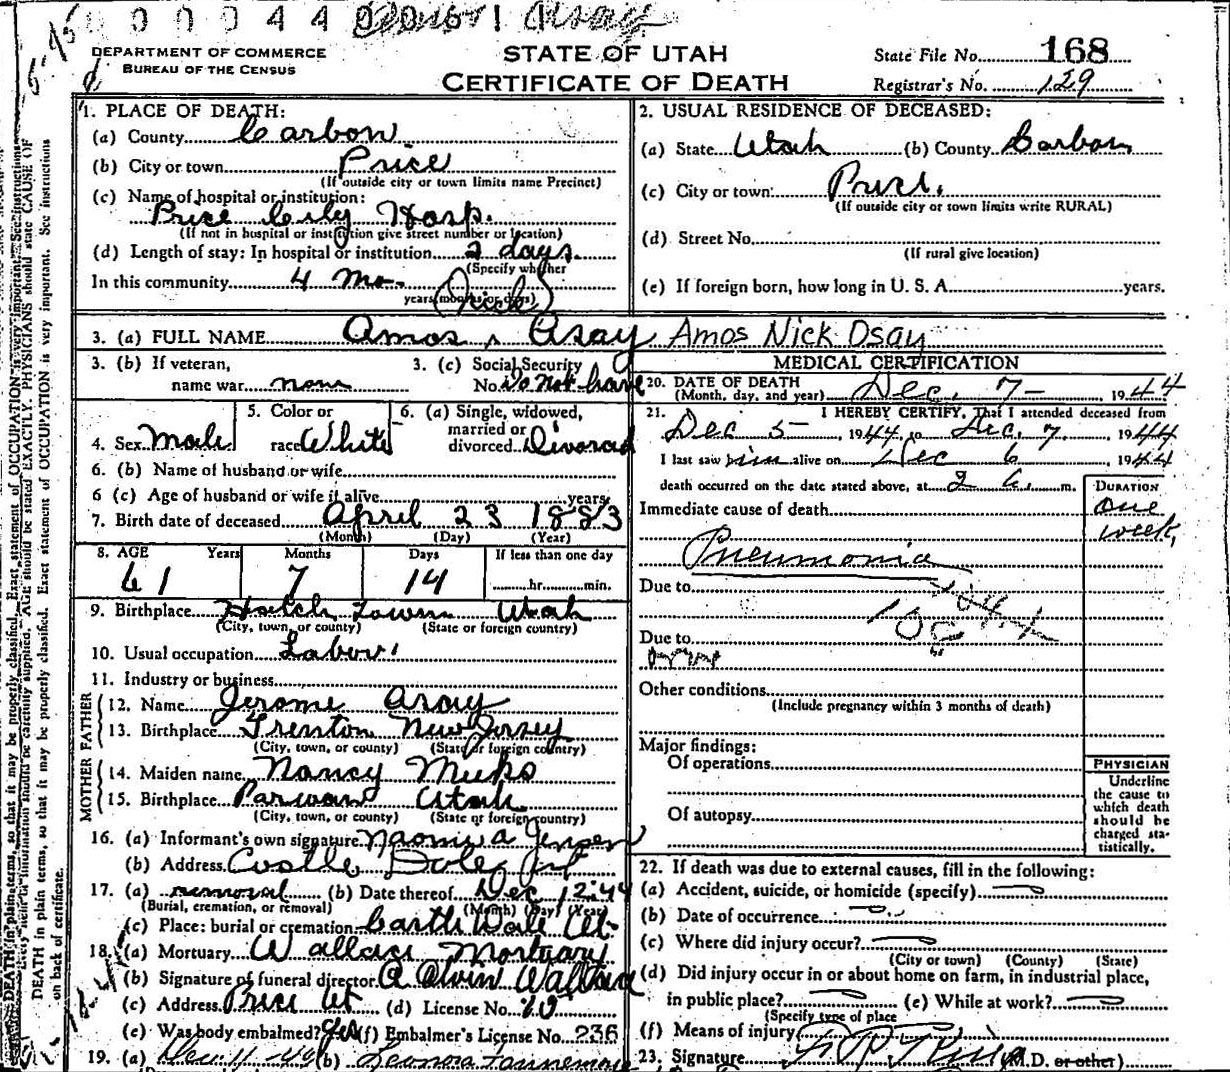 0 0 0 4 4 0 0 6 1 Asay
DEPARTMENT OF COMMERCE
BUREAU OF THE CENSUS
STATE OF UTAH
CERTIFICATE OF DEATH
State File No. 168
Registrar's No. 129
1. PLACE OF DEATH:
(a) County Carbon
(b) City or town Price
(If outside city or town limits name Precinct)
(c) Name of hospital or institution:
Price City Hosp.
(If not in hospital or institution give street number or location)
(d) Length of stay: In hospital or institution 2 days.
(Specify whether
In this community 4 mo.
years, months or days)
(Nick)
2. USUAL RESIDENCE OF DECEASED:
(a) State Utah (b) County Carbon
(c) City or town: Price.
(If outside city or town limits write RURAL)
(d) Street No.
(If rural give location)
(e) If foreign born, how long in U. S. A. years.
3. (a) FULL NAME Amos Asay Amos Nick Osay
3. (b) If veteran,
name war none
3. (c) Social Security
No. Do not have
4. Sex Male
5. Color or
race White
6. (a) Single, widowed,
married or
divorced Divorced
6. (b) Name of husband or wife
6 (c) Age of husband or wife if alive years
7. Birth date of deceased April 23 1883
(Month) (Day) (Year)
8. AGE Years Months Days If less than one day
61 7 14 hr. min.
9. Birthplace Hatch Town Utah
(City, town, or county) (State or foreign country)
10. Usual occupation Labor
11. Industry or business
FATHER
12. Name Jerome Asay
13. Birthplace Trenton New Jersey
(City, town, or county) (State or foreign country)
MOTHER
14. Maiden name Nancy Meeks
15. Birthplace Parwan Utah
(City, town, or county) (State or foreign country)
16. (a) Informant's own signature Naomi A Jensen
(b) Address Castle Dale
17. (a) removal (b) Date thereof Dec 12-44
(Burial, cremation, or removal) (Month) (Day) (Year)
(c) Place: burial or cremation Castle Dale Ut.
18. (a) Mortuary Wallace Mortuary
(b) Signature of funeral director A Alvin Wallace
(c) Address Price Ut (d) License No.
(e) Was body embalmed? yes (f) Embalmer's License No. 236
19. (a) Dec 11-44 (b) Leonora
MEDICAL CERTIFICATION
20. DATE OF DEATH
(Month, day, and year) Dec. 7- 1944
21. I HEREBY CERTIFY, That I attended deceased from
Dec 5- 1944, to Dec. 7. 1944
I last saw him alive on Dec 6 1944
death occurred on the date stated above, at 2 a. m.
DURATION
Immediate cause of death one
week,
Pneumonia
Due to
Due to
Other conditions
(Include pregnancy within 3 months of death)
Major findings:
Of operations
Of autopsy
PHYSICIAN
Underline
the cause to
which death
should be
charged sta-
tistically.
22. If death was due to external causes, fill in the following:
(a) Accident, suicide, or homicide (specify)
(b) Date of occurrence
(c) Where did injury occur?
(City or town) (County) (State)
(d) Did injury occur in or about home on farm, in industrial place,
in public place? (e) While at work?
(Specify type of place
(f) Means of injury
23. Signature (M.D. or other)